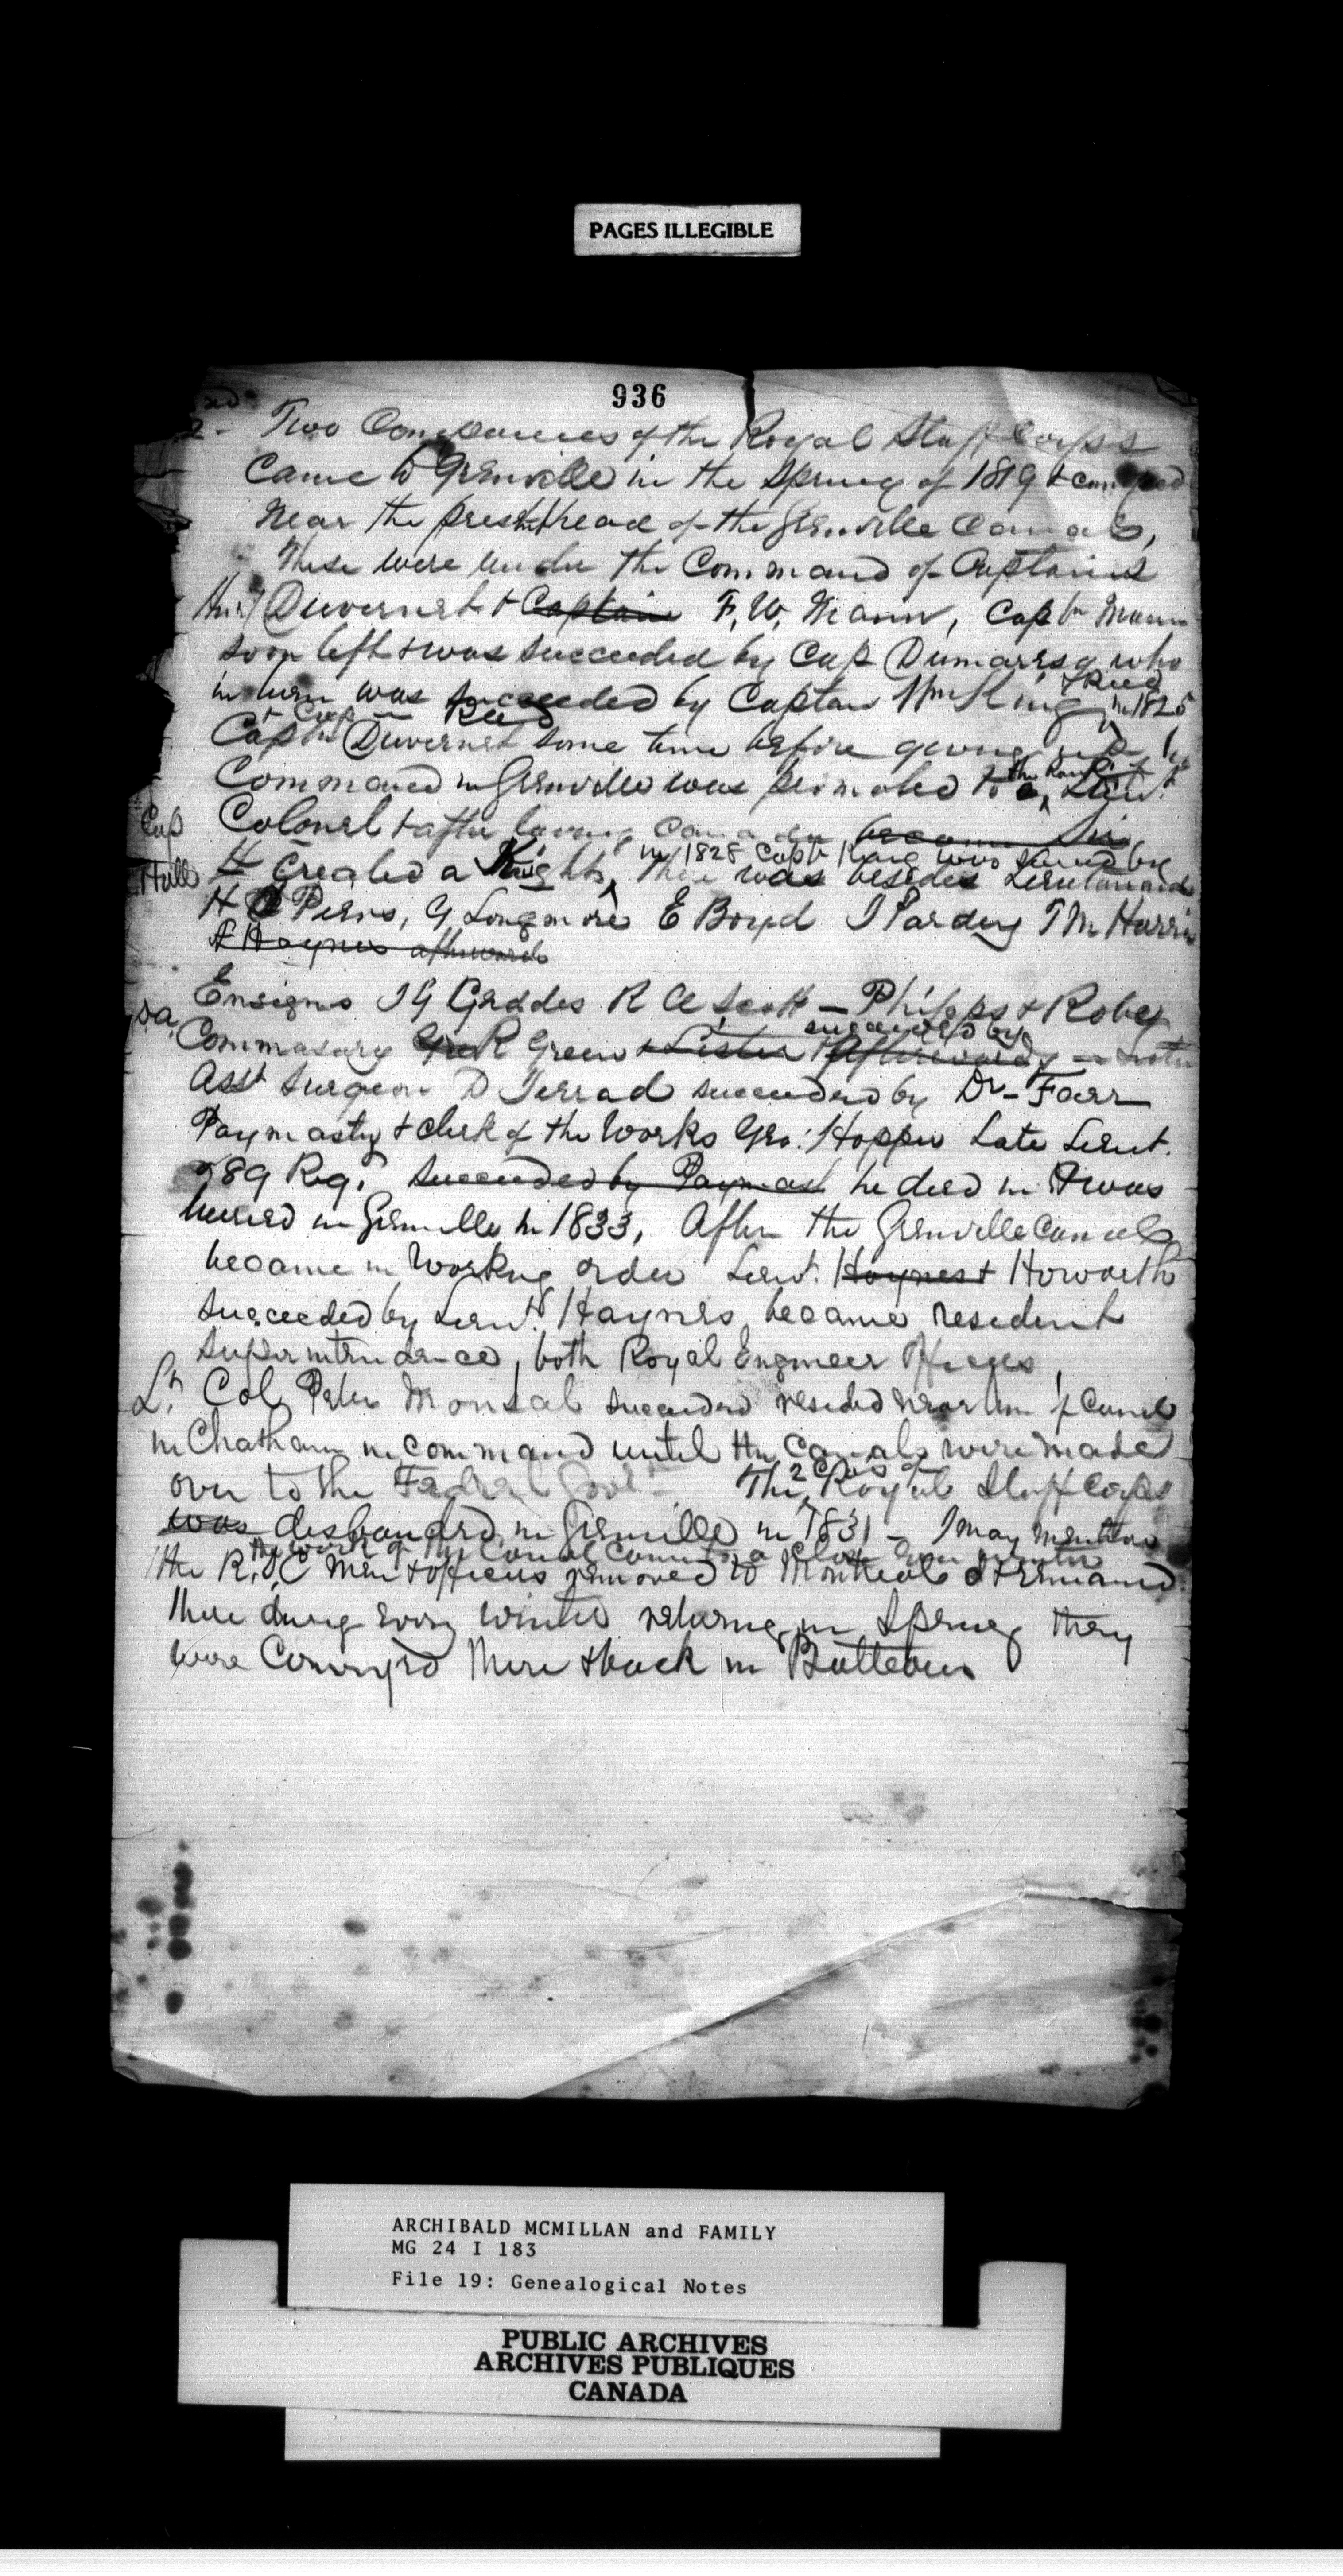 PAGES ILLEGIBLE
936
2 - Two Companies of the Royal Staff Corps
Came to Grenville in the Spring of 1819 &
near the present head of the Grenville Canal,
These were under the Command of Captains
Duvernet & Captain F. W. Mann, Captn Mann
soon left & was succeeded by Cap Dumaresq who
& Reed
in turn was succeeded by Captain Wm King in 1825
& Cap Reed
Captn Duvernet some time before giving up his
the Rank of
Command in Grenville was promoted to a Lieut.
Cap
Colonel & after leaving Canada became Sir
in 1828 Captn King was by
Hall
H Created a Knight, There was besides Lieutenants
H Piers, G Longmore E Boyd J Pardey T M Harris
A Haynes afterwards
Ensigns J G Geddes R A Scott - Philpps & Robey
succeeded by
Commasary R Green & Lister & Afterwards
Asst Surgeon D Terrad succeeded by Dr- Farr
Paymaster & clerk of the Works Geo: Hopper Late Lieut.
89 Reg. succeeded by Paymast he died in & was
buried in Grenville in 1833, After the Grenville Canal
became in Working order Lieut. Haynes & Howorth
succeeded by Lieut. Haynes became resident
superintendance, both Royal Engineer Officers,
Lt Col Peter succeeded resided near canal
in Chatham in command until the Canals were made
2 Cos of
over to the Federal Govt - The Royal Staff Corps
was disbanded in Grenville in 1831 - I may mention
the work of the Canal a close every winter
the R.S.C men & officers removed to Montreal & remained
there during every winter returning in Spring they
were Conveyed there & back in Batteaux
ARCHIBALD MCMILLAN and FAMILY
MG 24 I 183
File 19: Genealogical Notes
PUBLIC ARCHIVES
ARCHIVES PUBLIQUES
CANADA